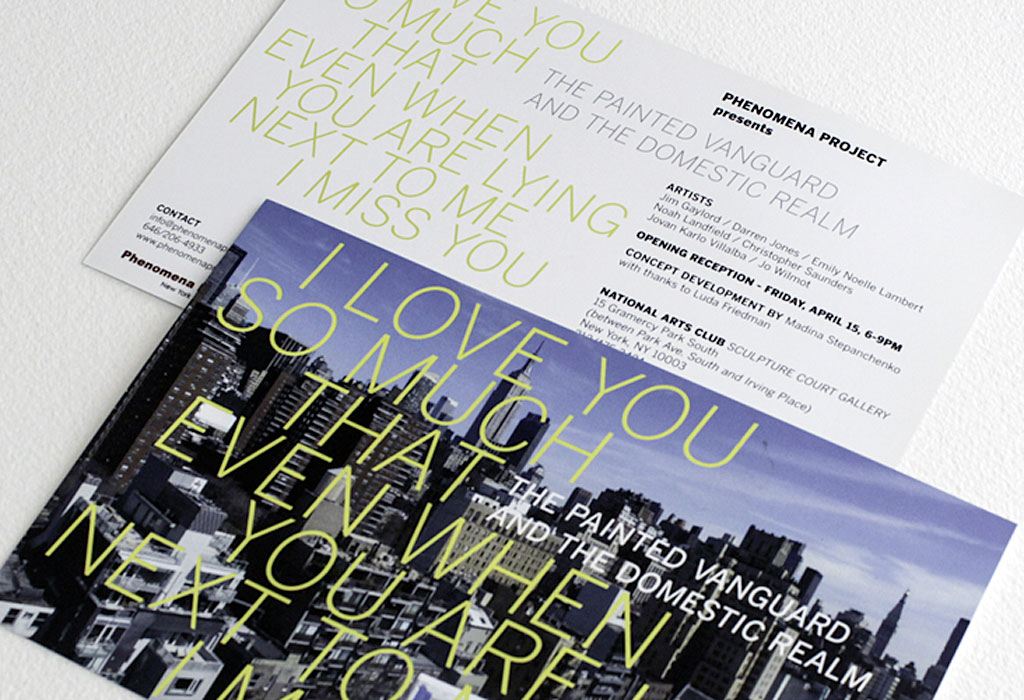 VE YOU
O MUCH
THAT
EVEN WHEN
YOU ARE LYING
NEXT TO ME
I MISS YOU
THE PAINTED VANGUARD
AND THE DOMESTIC REALM
PHENOMENA PROJECT
presents
ARTISTS
Jim Gaylord / Darren Jones / Emily Noelle Lambert
Noah Landfield / Christopher Saunders
Jovan Karlo Villalba / Jo Wilmot
OPENING RECEPTION - FRIDAY, APRIL 15, 6-9PM
CONCEPT DEVELOPMENT BY Madina Stepanchenko
with thanks to Luda Friedman
NATIONAL ARTS CLUB SCULPTURE COURT GALLERY
15 Gramercy Park South
(between Park Ave. South and Irving Place)
New York, NY 10003
CONTACT
info@phenomenap
646/206-4933
www.phenomenap
Phenomena
New York
I LOVE YOU
SO MUCH
THAT
EVEN WHEN
YOU ARE L
NEXT TO M
I M
THE PAINTED VANGUARD
AND THE DOMESTIC REALM